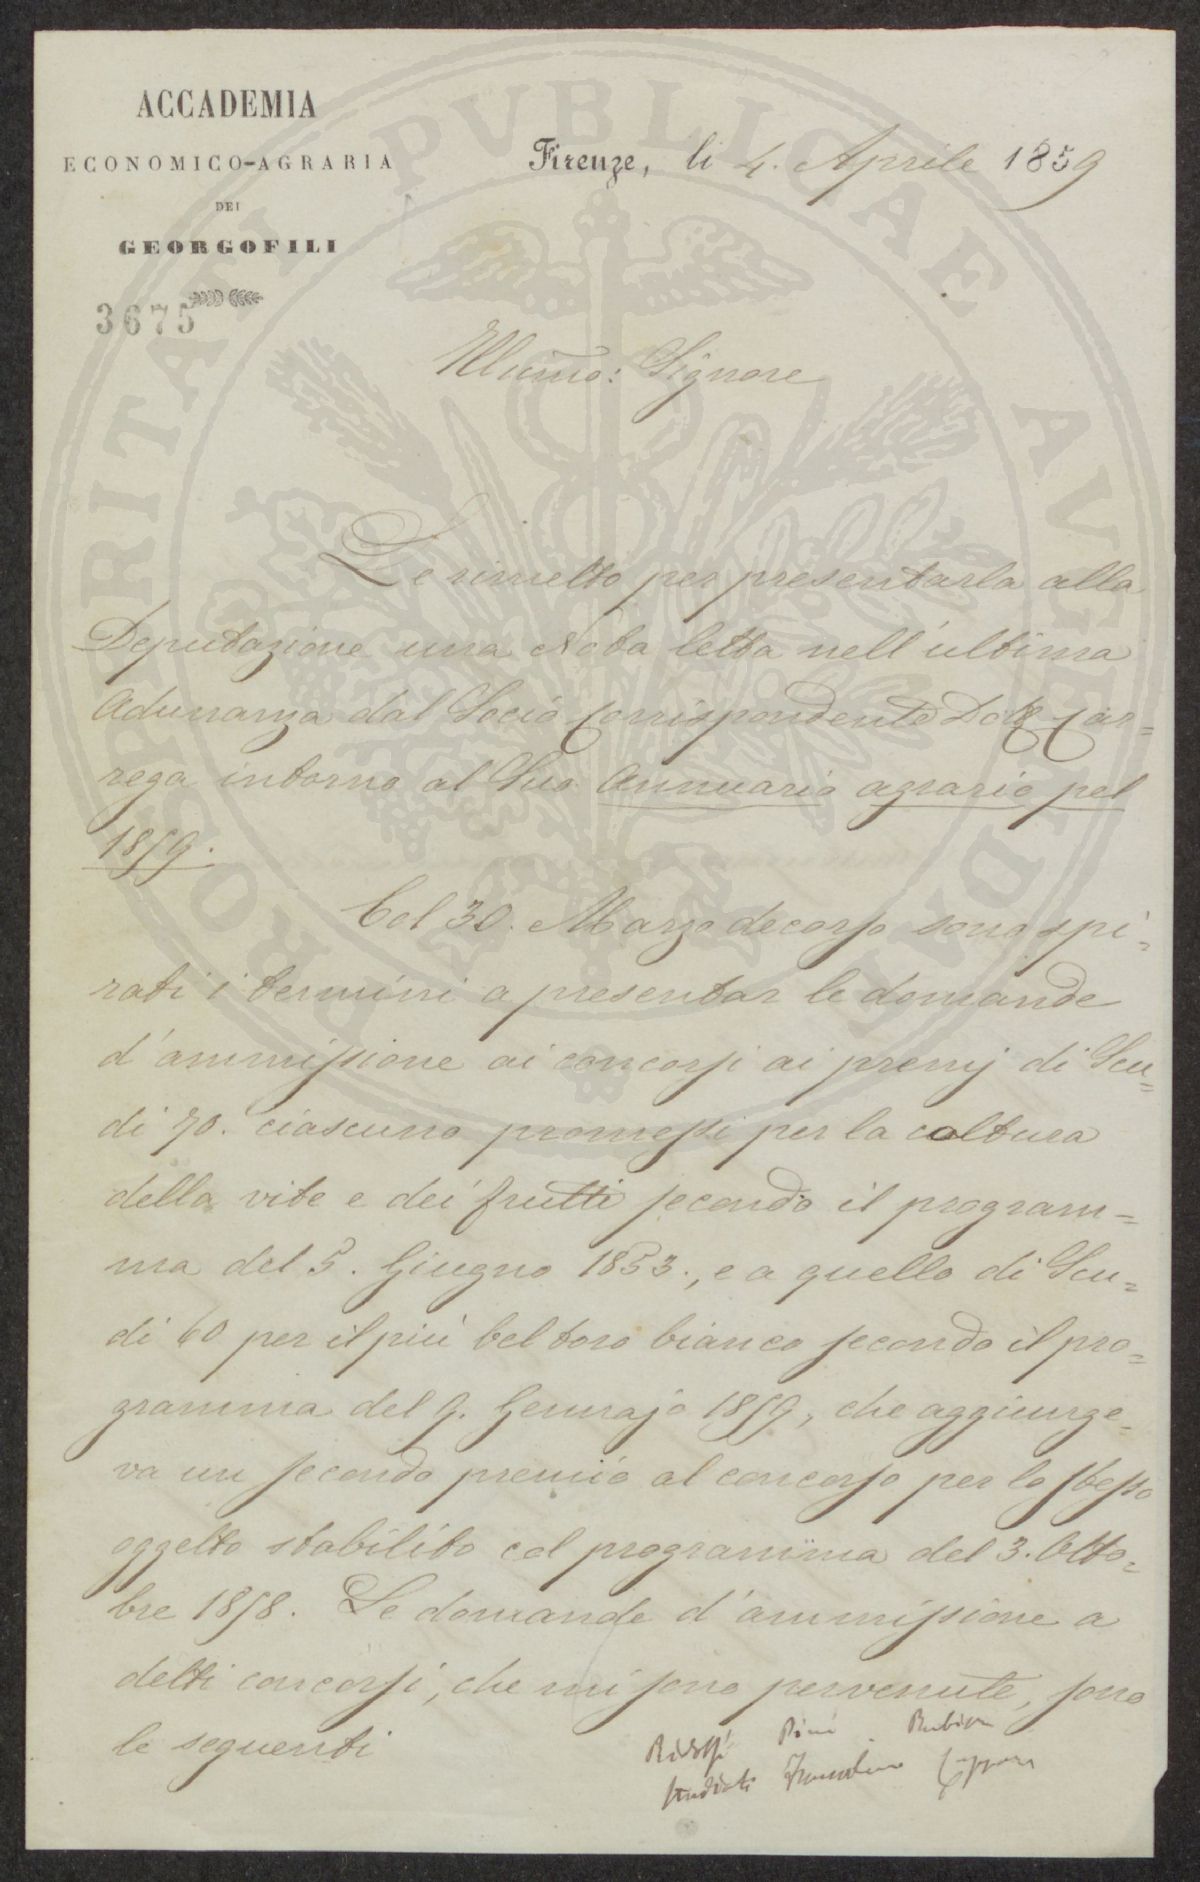 ACCADEMIA
ECONOMICO-AGRARIA
DEI
GEORGOFILI
3675
Firenze, li 4. Aprile 1859
Illumo: Signore
Le rimetto per presentarla alla
Deputazione una Nota letta nell'ultima
Adunanza dal Socio Corrispondente Dott. Car=
rega intorno al Suo Annuario agrario pel
1859.
Col 30. Marzo decorso sono spi=
rati i termini a presentar le domande
d'ammissione ai concorsi ai premj di Scu=
di 70. ciascuno promessi per la coltura
della vite e dei frutti secondo il program=
ma del 5. Giugno 1853., e a quello di Scu=
di 60 per il più bel toro bianco secondo il pro=
gramma del 9. Gennajo 1859, che aggiunge=
va un secondo premio al concorso per lo stesso
oggetto stabilito col programma del 3. Otto=
bre 1858. Le domande d'ammissione a
detti concorsi, che mi sono pervenute, sono
le seguenti
Ridolfi
Studiati
PROSPERITATI PVBLICAE AVGENDAE